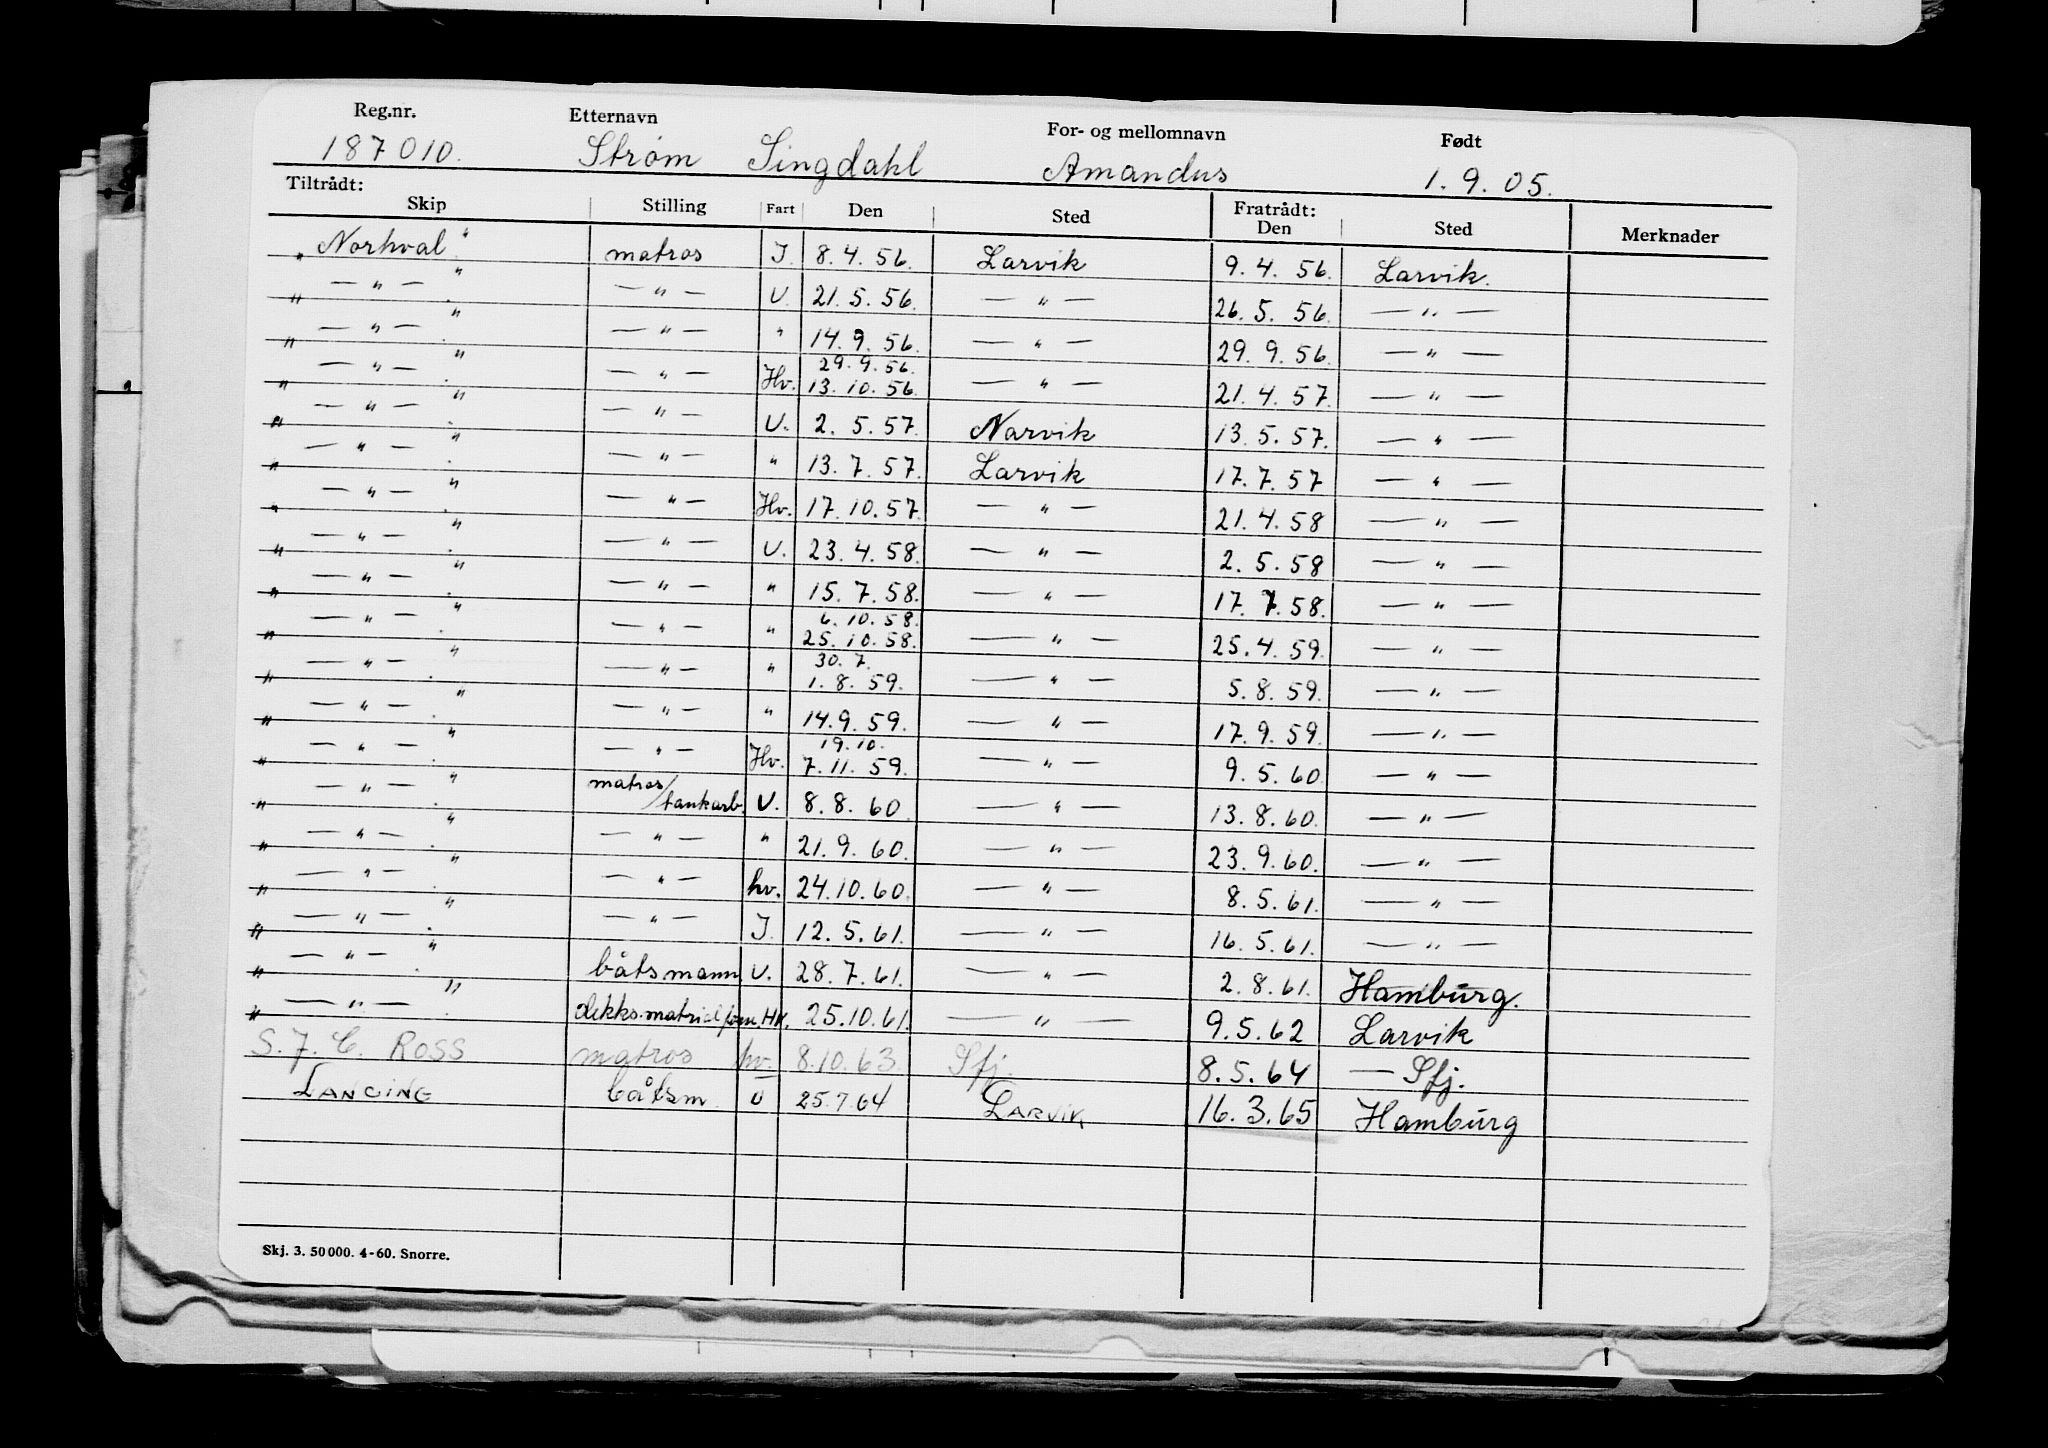 Reg.nr. Etternavn For- og mellomnavn Født
187010. Strøm Singdahl Amandus 1.9.05.
Tiltrådt: Fratrådt:
Skip Stilling Fart Den Sted Den Sted Merknader
"Norhval" matros I. 8.4.56. Larvik 9.4.56. Larvik.
" — " — " — " — U. 21.5.56. — " — 26.5.56. — " —
" — " — " — " — " 14.9.56. — " — 29.9.56. — " —
" — " — " — " — Hv. 29.9.56. 13.10.56. — " — 21.4.57. — " —
" — " — " — " — U. 2.5.57. Narvik 13.5.57. — " —
" — " — " — " — " 13.7.57. Larvik 17.7.57 — " —
" — " — " — " — Hv. 17.10.57. — " — 21.4.58 — " —
" — " — " — " — U. 23.4.58. — " — 2.5.58 — " —
" — " — " — " — " 15.7.58. — " — 17.7.58. — " —
" — " — " — " — " 6.10.58. 25.10.58. — " — 25.4.59. — " —
" — " — " — " — " 30.7. 1.8.59. — " — 5.8.59. — " —
" — " — " — " — " 14.9.59. — " — 17.9.59. — " —
" — " — " — " — Hv. 19.10. 7.11.59. — " — 9.5.60 — " —
" — " — " matros/tankarb. U. 8.8.60 — " — 13.8.60. — " —
" — " — " — " — " 21.9.60. — " — 23.9.60. — " —
" — " — " — " — hv. 24.10.60. — " — 8.5.61. — " —
" — " — " — " — I. 12.5.61. — " — 16.5.61. — " —
" — " — " båtsmann U. 28.7.61. — " — 2.8.61. Hamburg.
" — " — " HK. 25.10.61. — " — 9.5.62 Larvik
S. J. C. Ross matros hv. 8.10.63. Sfj. 8.5.64 — Sfj.
Lancing båtsm U 25.7.64 Larvik 16.3.65 Hamburg
Skj. 3. 50 000. 4-60. Snorre.